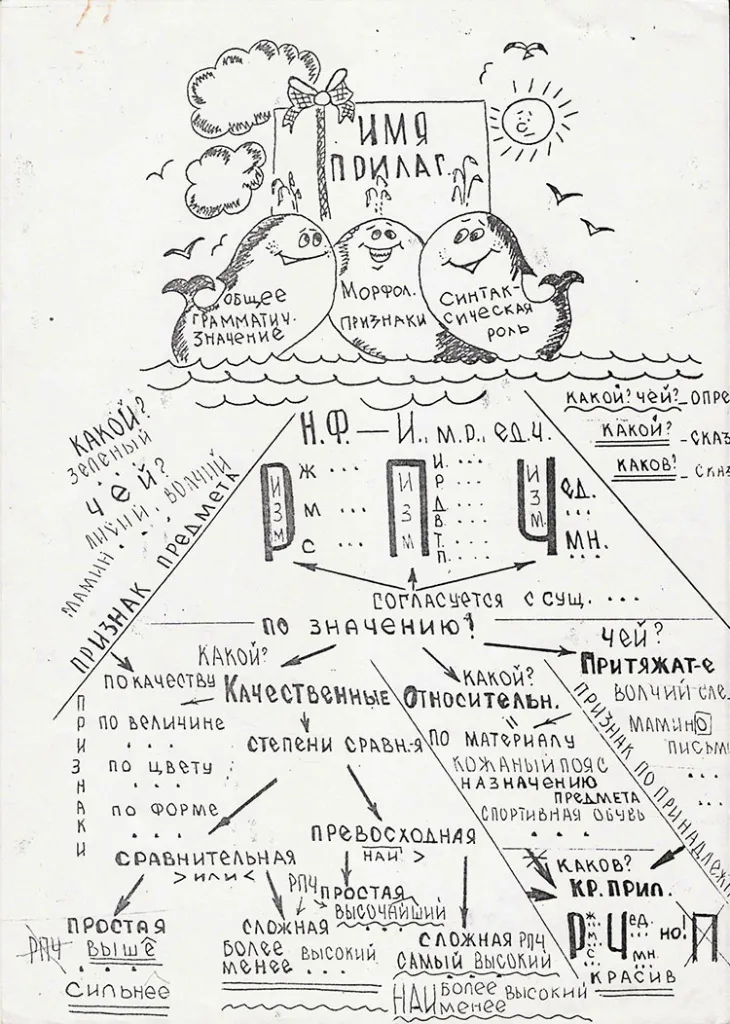 ИМЯ
ПРИЛАГ.
ОБЩЕЕ
ГРАММАТИЧ.
ЗНАЧЕНИЕ
МОРФОЛ.
ПРИЗНАКИ
СИНТАК-
СИЧЕСКАЯ
РОЛЬ
КАКОЙ? ЧЕЙ? - ОПРЕ
КАКОЙ? - СКАЗ
КАКОВ? - СКАЗ
КАКОЙ?
ЗЕЛЕНЫЙ
...
ЧЕЙ?
ЛИСИЙ, ВОЛЧИЙ
МАМИН...
ПРИЗНАК ПРЕДМЕТА
Н.Ф. — И., М.Р., ЕД.Ч.
Р ИЗМ
Ж ...
М ...
С ...
П ИЗМ
И. ....
Р. ....
Д. ....
В. ....
Т. ....
П. ....
Ч ИЗМ.
ЕД.
...
МН.
СОГЛАСУЕТСЯ С СУЩ. ...
ПО ЗНАЧЕНИЮ!
ПРИЗНАКИ
ПО КАЧЕСТВУ
ПО ВЕЛИЧИНЕ
...
ПО ЦВЕТУ
...
ПО ФОРМЕ
...
КАКОЙ?
КАЧЕСТВЕННЫЕ
СТЕПЕНИ СРАВН-Я
СРАВНИТЕЛЬНАЯ
> ИЛИ <
ПРОСТАЯ
РПЧ
ВЫШЕ
СИЛЬНЕЕ
РПЧ
СЛОЖНАЯ
БОЛЕЕ
МЕНЕЕ
ВЫСОКИЙ
...
ПРЕВОСХОДНАЯ
НАИ >
ПРОСТАЯ
ВЫСОЧАЙШИЙ
СЛОЖНАЯ РПЧ
САМЫЙ ВЫСОКИЙ
НАИ БОЛЕЕ
МЕНЕЕ
ВЫСОКИЙ
КАКОЙ?
ОТНОСИТЕЛЬН.
ПО МАТЕРИАЛУ
КОЖАНЫЙ ПОЯС
НАЗНАЧЕНИЮ
ПРЕДМЕТА
СПОРТИВНАЯ ОБУВЬ
...
ЧЕЙ?
ПРИТЯЖАТ-Е
ВОЛЧИЙ СЛЕ
МАМИНО
ПИСЬМ
...
...
ПРИЗНАК ПО ПРИНАДЛЕЖН
КАКОВ?
КР. ПРИЛ.
Р
Ж...
М...
С...
Ч
ЕД.
...
МН.
НО!
П
КРАСИВ